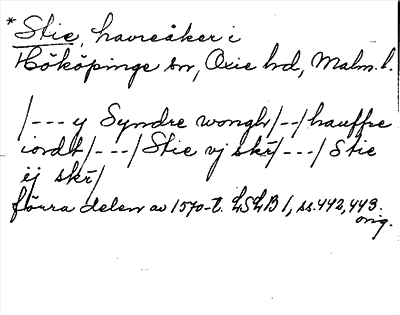 * Stie, havreåker i
Hököpinge sn, Oxie hd, Malm. l.
/--- y Syndre wongh/--/hauffre
iordt/---/Stie vj skr/---/ Stie
ij skr/
förra delen av 1570-t. LSLB 1, ss. 442, 443.
orig.